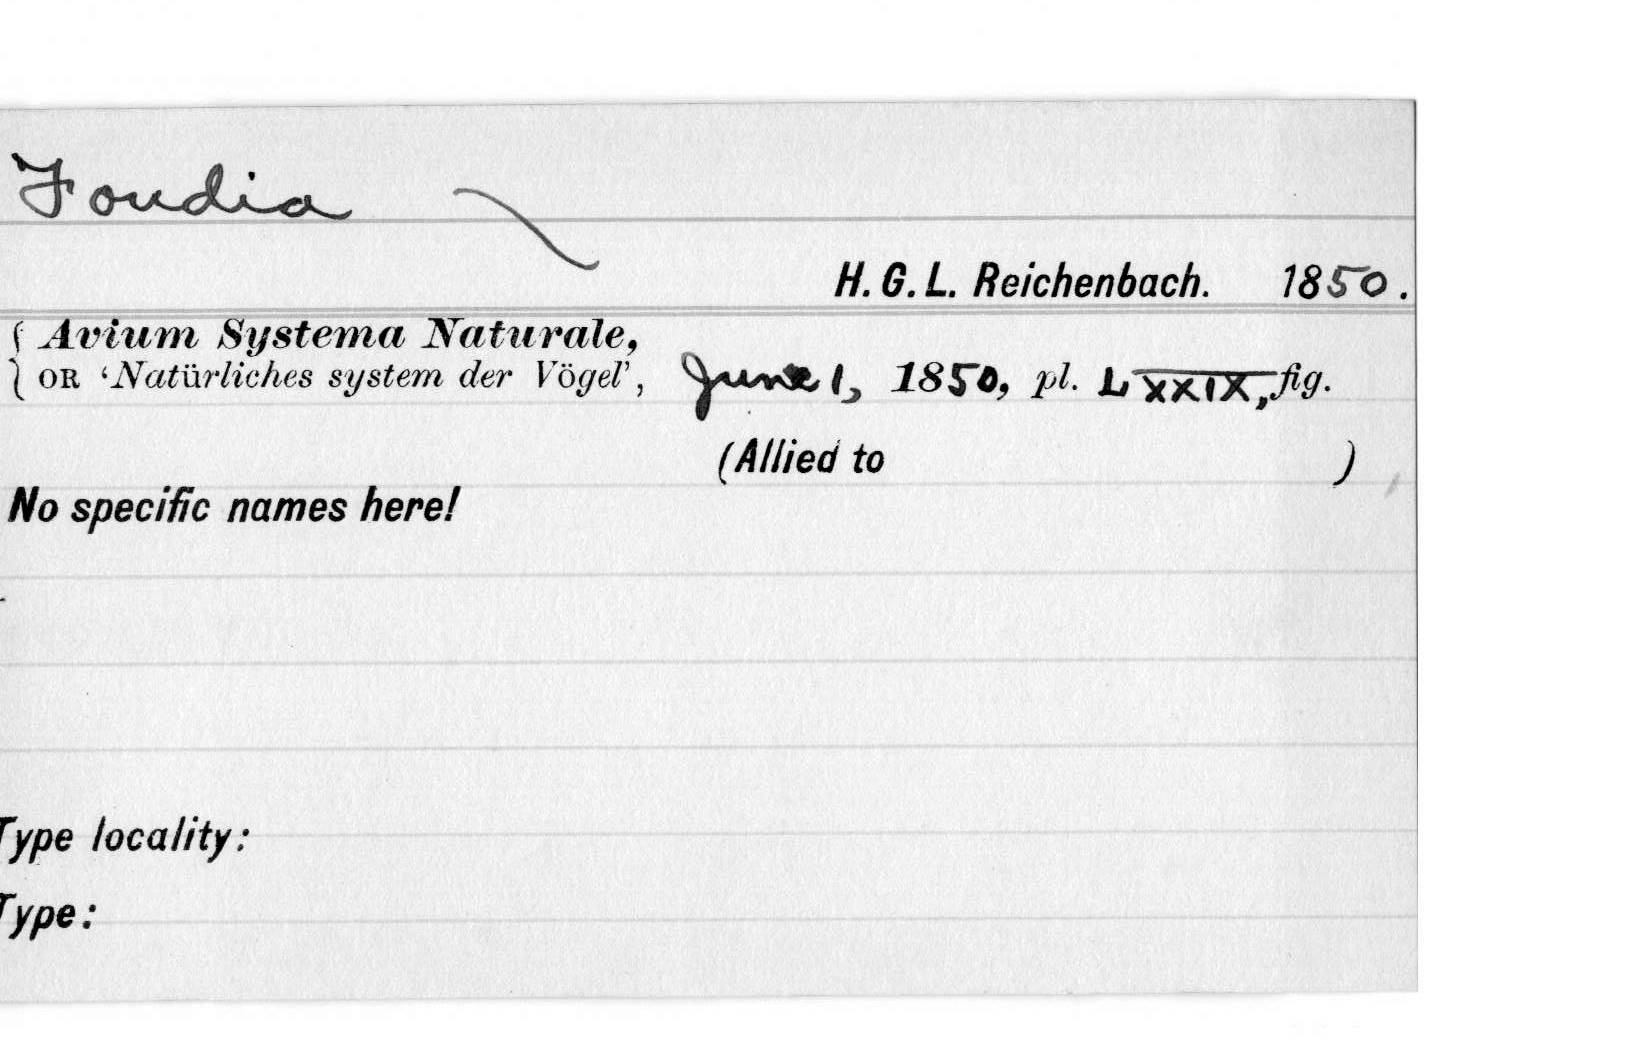 Foudia
H. G. L. Reichenbach. 1850.
{ Avium Systema Naturale,
OR 'Natürliches system der Vögel', June 1, 1850, pl. LXXIX, fig.
(Allied to )
No specific names here!
Type locality:
Type: